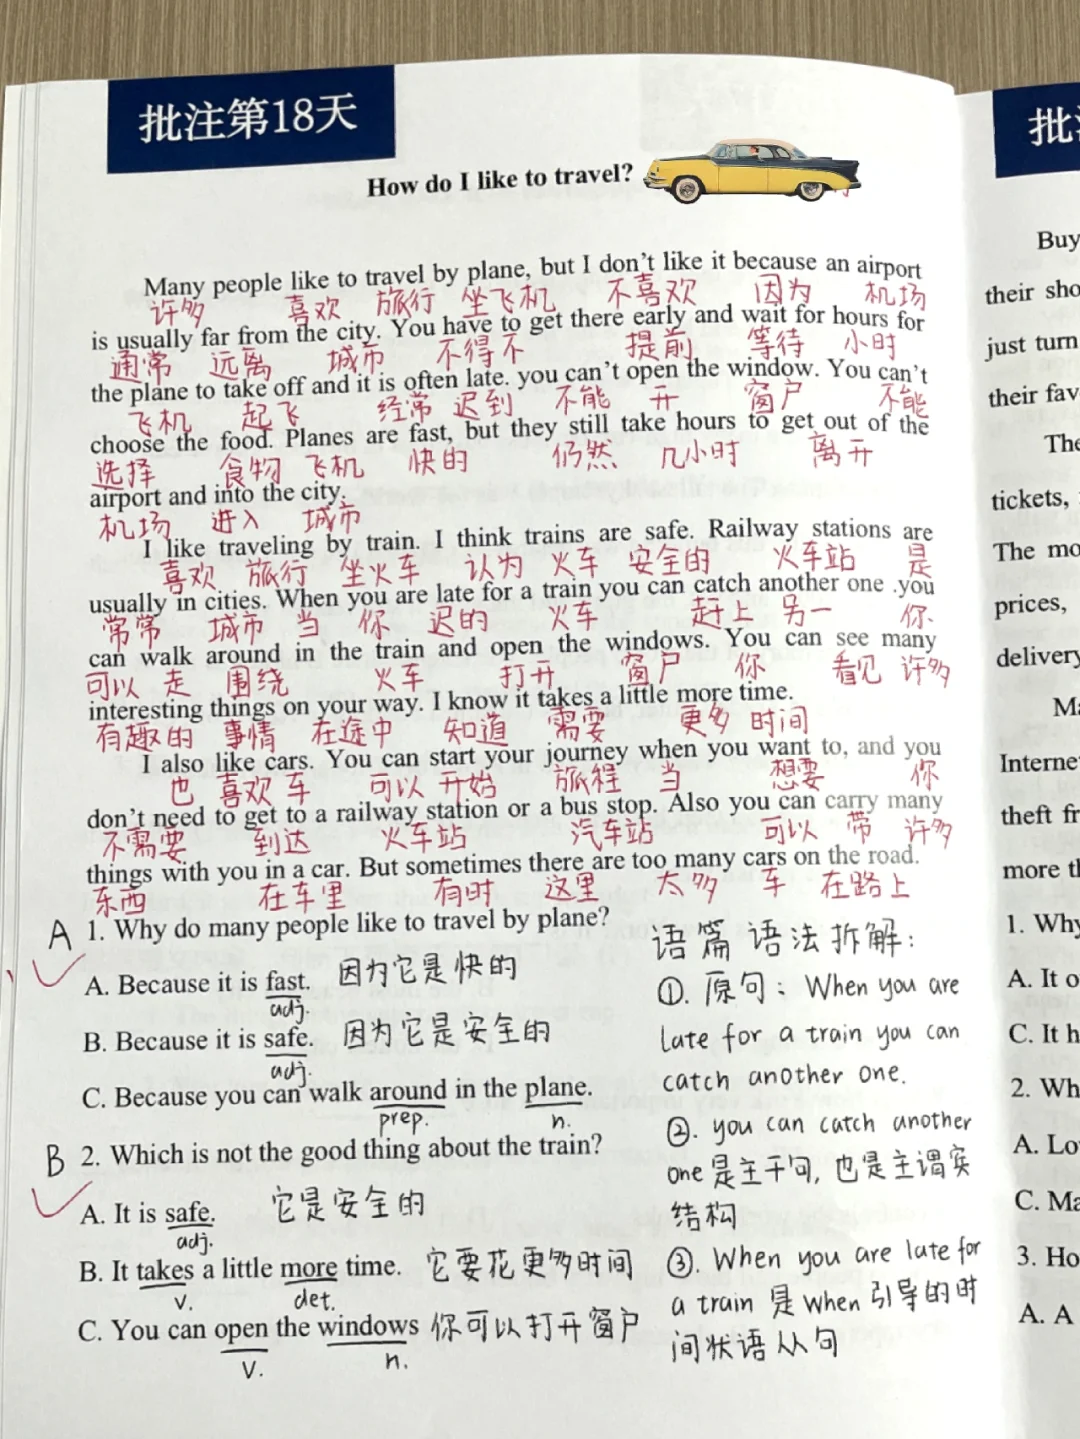 批注第18天
How do I like to travel?
Many people like to travel by plane, but I don't like it because an airport
许多 喜欢 旅行 坐飞机 不喜欢 因为 机场
is usually far from the city. You have to get there early and wait for hours for
通常 远离 城市 不得不 提前 等待 小时
the plane to take off and it is often late. you can't open the window. You can't
飞机 起飞 经常 迟到 不能 开 窗户 不能
choose the food. Planes are fast, but they still take hours to get out of the
选择 食物 飞机 快的 仍然 几小时 离开
airport and into the city.
机场 进入 城市
I like traveling by train. I think trains are safe. Railway stations are
喜欢 旅行 坐火车 认为 火车 安全的 火车站 是
usually in cities. When you are late for a train you can catch another one .you
常常 城市 当 你 迟的 火车 赶上 另一 你
can walk around in the train and open the windows. You can see many
可以 走 围绕 火车 打开 窗户 你 看见 许多
interesting things on your way. I know it takes a little more time.
有趣的 事情 在途中 知道 需要 更多 时间
I also like cars. You can start your journey when you want to, and you
也 喜欢 车 可以 开始 旅程 当 想要 你
don't need to get to a railway station or a bus stop. Also you can carry many
不需要 到达 火车站 汽车站 可以 带 许多
things with you in a car. But sometimes there are too many cars on the road.
东西 在车里 有时 这里 太多 车 在路上
A 1. Why do many people like to travel by plane?
A. Because it is fast. 因为它是快的
adj.
B. Because it is safe. 因为它是安全的
adj.
C. Because you can walk around in the plane.
prep. n.
B 2. Which is not the good thing about the train?
A. It is safe. 它是安全的
adj.
B. It takes a little more time. 它要花更多时间
v. det.
C. You can open the windows 你可以打开窗户
v. n.
语篇语法拆解：
①. 原句：When you are
late for a train you can
catch another one.
②. you can catch another
one是主干句，也是主谓宾
结构
③. When you are late for
a train 是When引导的时
间状语从句
批
Buy
their sho
just turn
their fav
The
tickets,
The mo
prices,
delivery
Ma
Interne
theft fr
more th
1. Why
A. It o
C. It h
2. Wh
A. Lo
C. Ma
3. Ho
A. A